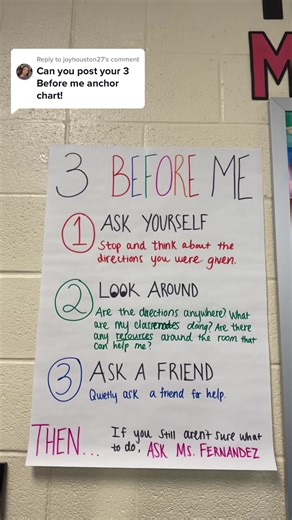 Reply to joyhouston27's comment
Can you post your 3
Before me anchor
chart!
3 BEFORE ME
1 ASK YOURSELF
Stop and think about the
directions you were given.
2 LOOK AROUND
Are the directions anywhere? What
are my classmates doing? Are there
any resources around the room that
can help me?
3 ASK A FRIEND
Quietly ask a friend for help.
THEN...
If you still aren't sure what
to do, ASK MS. FERNANDEZ